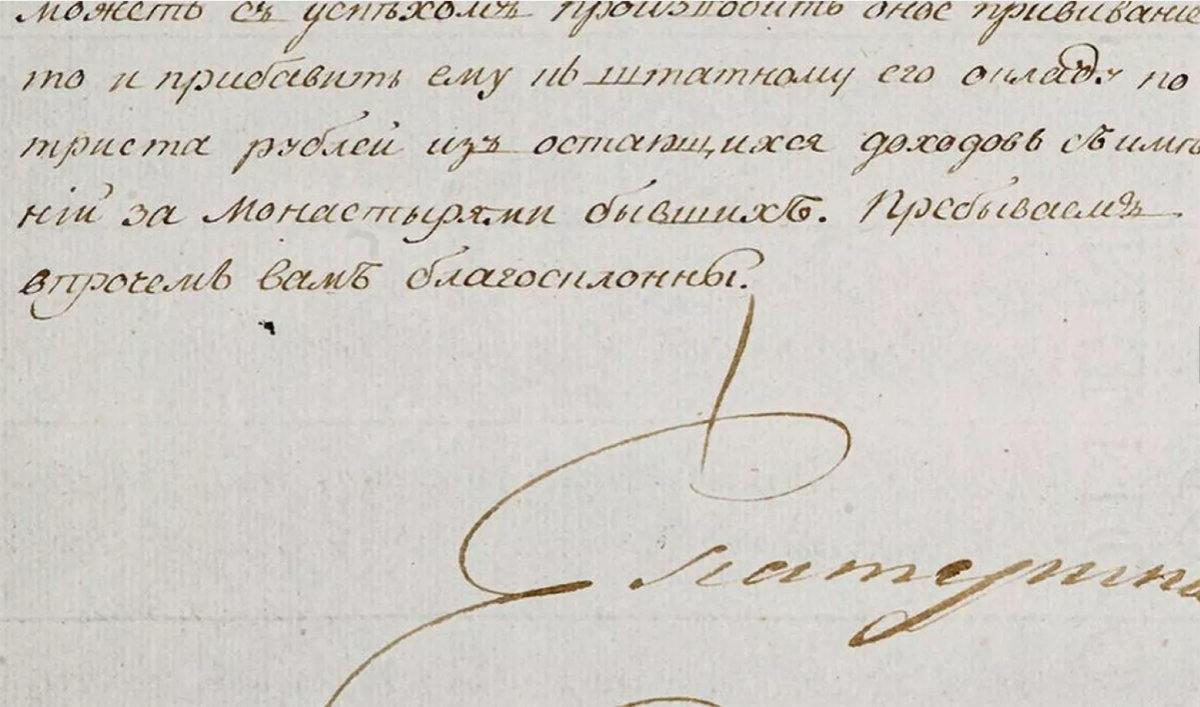 можетъ съ успѣхомъ производить оное прививание
то и прибавить ему къ штатному его окладу по
триста рублей изъ остающихся доходовъ съ имѣ
ній за монастырями бывшихъ. Пребываемъ
впрочемъ вамъ благосклонны.
Екатерина